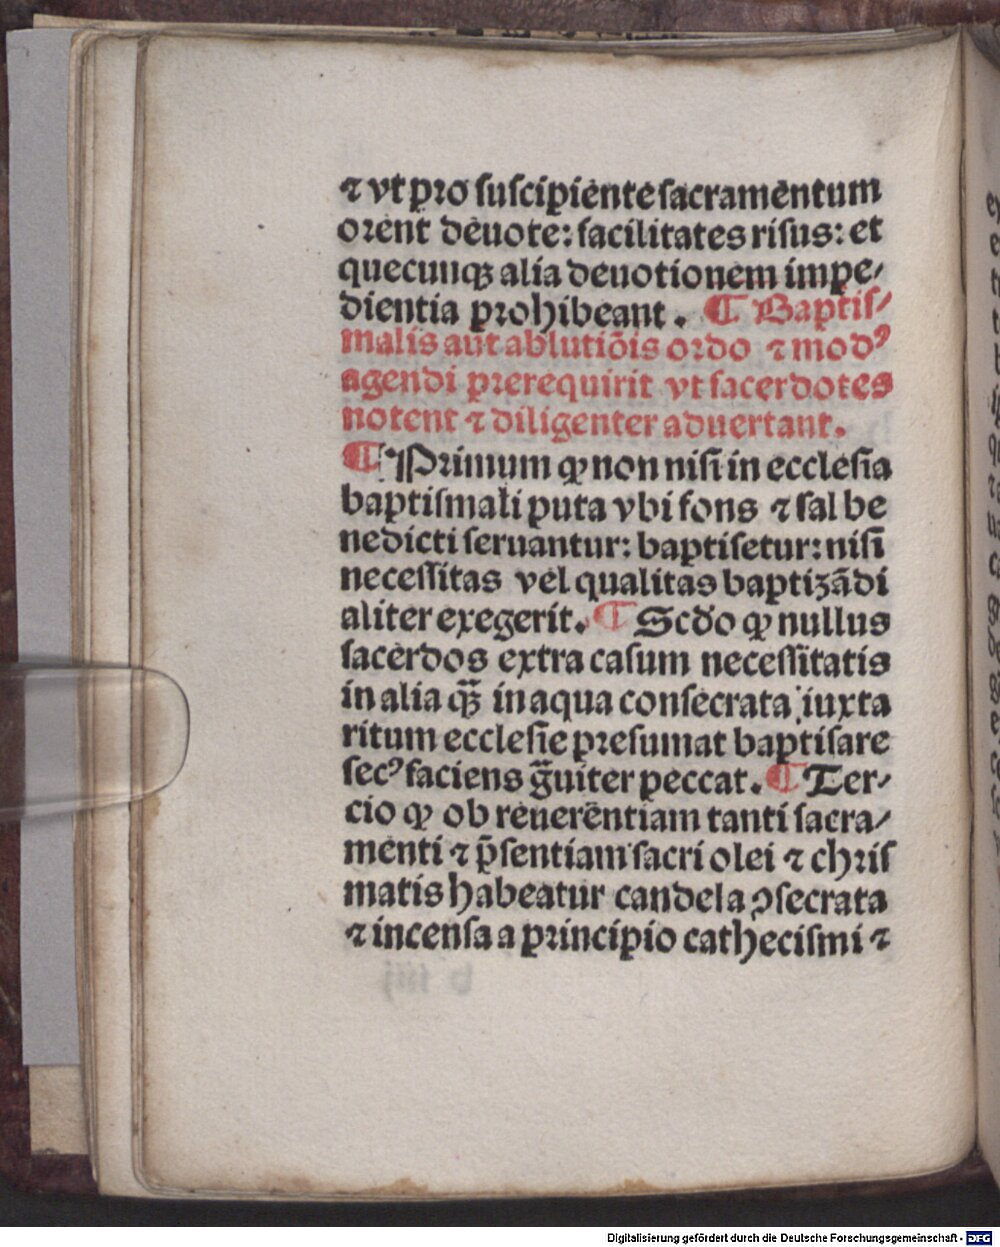 ⁊ vt pro ſuſcipiente ſacramentum
orent deuote: facilitates riſus: et
quecunqꝫ alia deuotionem impe⸗
dientia prohibeant. ¶ Baptiſ⸗
malis aut ablutiõis ordo ⁊ modꝰ
agendi prerequirit vt ſacerdotes
notent ⁊ diligenter aduertant.
¶ Primum ꝙ non niſi in eccleſia
baptiſmali puta vbi fons ⁊ ſal be
nedicti ſeruantur: baptiſetur: niſi
neceſſitas vel qualitas baptizãdi
aliter exegerit. ¶ Scd́o ꝙ nullus
ſacerdos extra caſum neceſſitatis
in alia qꝫ̃ in aqua conſecrata iuxta
ritum eccleſie preſumat baptiſare
ſecꝰ faciens g̃uiter peccat. ¶ Ter⸗
cio ꝙ ob reuerẽtiam tanti ſacra⸗
menti ⁊ p̃ſentiam ſacri olei ⁊ chriſ
matis habeatur candela ꝯſecrata
⁊ incenſa a principio catheciſmi ⁊
Digitalisierung gefördert durch die Deutsche Forschungsgemeinschaft - DFG